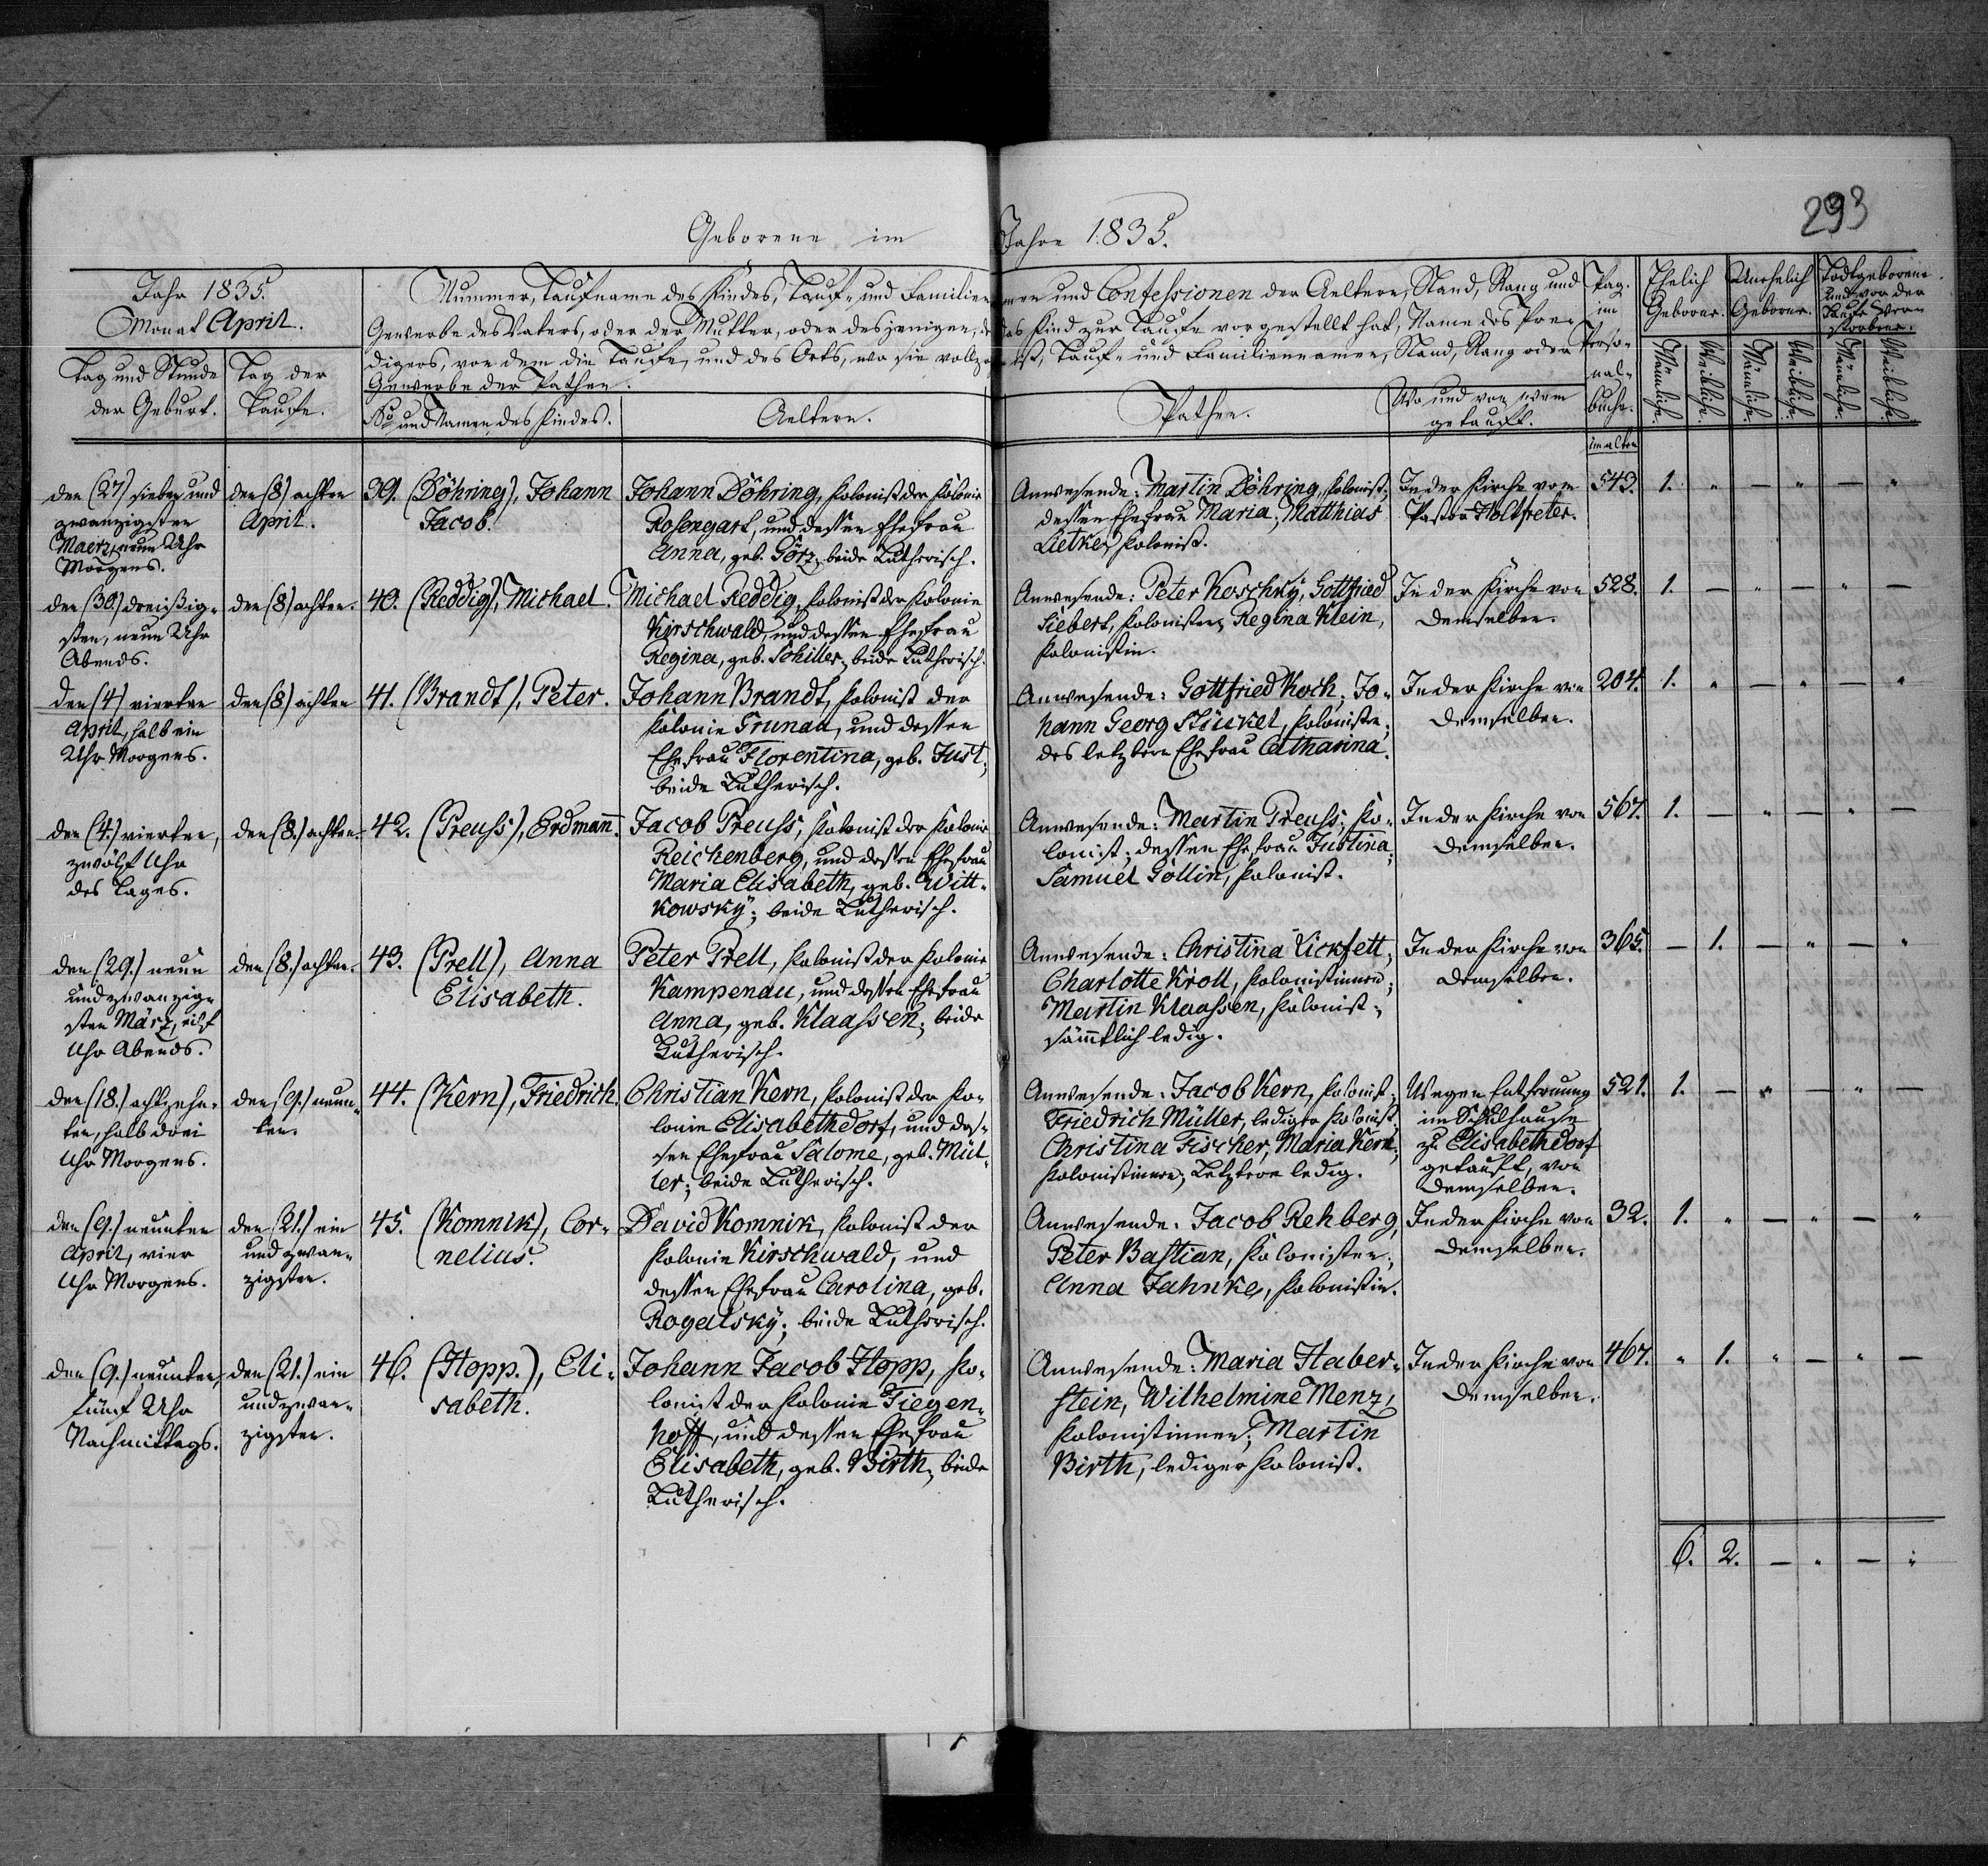 293
Geborene im Jahre 1835.
Jahr 1835.
Monat April.
Tag und Stunde
der Geburt.
Tag der
Taufe.
Nummer, Taufname des Kindes, Tauf- und Familiennamen und Confessionen der Aeltern, Stand, Rang und
Gewerbe des Vaters, oder der Mutter, oder desjenigen, der das Kind zur Taufe vorgestellt hat, Name des Pre-
digers, von dem die Taufe, und des Orts, wo sie vollzogen ist, Tauf- und Familiennamen, Stand, Rang oder
Gewerbe der Pathen.
No und Namen des Kindes.
Aeltern.
Pathen.
Wo und von wem
getauft.
Pag.
im
Perso-
nal-
buche.
im alten
Ehelich
Geborne.
Unehelich
Geborne.
Todtgeborene
und vor der
Taufe Ver-
storbene.
Männliche.
Weibliche.
Männliche.
Weibliche.
Männliche.
Weibliche.
den (27) sieben und
zwanzigsten
Maerz, neun Uhr
Morgens.
den (8) achten
April.
39. (Döhring), Johann
Jacob.
Johann Döhring, Kolonist der Kolonie
Rosengart, und dessen Ehefrau
Anna, geb. Görz, beide Lutherisch.
Anwesende: Martin Döhring, Kolonist,
dessen Ehefrau Maria; Matthias
Lietke, Kolonist.
In der Kirche vom
Pastor Holtfreter.
543. 1. " — " — "
den (30.) dreißig-
sten, neun Uhr
Abends.
den (8) achten.
40. (Reddig), Michael.
Michael Reddig, Kolonist der Kolonie
Kirschwald, und dessen Ehefrau
Regina, geb. Schiller, beide Lutherisch.
Anwesende: Peter Koschky, Gottfried
Siebert, Kolonisten, Regina Klein,
Kolonistin.
In der Kirche von
demselben.
528. 1. — " — " —
den (4) vierten
April, halb ein
Uhr Morgens.
den (8) achten
41. (Brandt), Peter.
Johann Brandt, Kolonist der
Kolonie Grunau, und dessen
Ehefrau Florentina, geb. Just;
beide Lutherisch.
Anwesende: Gottfried Koch, Jo-
hann Georg Stückel, Kolonisten;
des letztern Ehefrau Catharina.
In der Kirche von
demselben.
204. 1. " — " — "
den (4.) vierten,
zwölf Uhr
des Tages.
den (8.) achten.
42. (Preuss), Erdmann.
Jacob Preuss, Kolonist der Kolonie
Reichenberg, und dessen Ehefrau
Maria Elisabeth, geb. Witt-
kowsky; beide Lutherisch.
Anwesende: Martin Preuss, Ko-
lonist; dessen Ehefrau Justina;
Samuel Göllin, Kolonist.
In der Kirche von
demselben.
567. 1. — " — " —
den (29.) neun
und zwanzig-
sten März, eilf
Uhr Abends.
den (8.) achten.
43. (Prell), Anna
Elisabeth.
Peter Prell, Kolonist der Kolonie
Kampenau, und dessen Ehefrau
Anna, geb. Klaassen; beide
Lutherisch.
Anwesende: Christina Lickfett,
Charlotte Kroll, Kolonistinnen;
Martin Klaassen, Kolonist;
sämmtlich ledig.
In der Kirche von
demselben.
365. — 1. — " — "
den (18.) achtzehn-
ten, halb drei
Uhr Morgens.
den (9.) neun-
ten.
44. (Kern), Friedrich.
Christian Kern, Kolonist der Ko-
lonie Elisabethdorf, und des-
sen Ehefrau Salome, geb. Mül-
ler; beide Lutherisch.
Anwesende: Jacob Kern, Kolonist;
Friedrich Müller, lediger Kolonist.
Christina Fischer, Maria Kern,
Kolonistinnen, Letztere ledig.
Wegen Entfernung
im Schulhause
zu Elisabethdorf
getauft, von
demselben.
521. 1. — " — " —
den (9.) neunten
April, vier
Uhr Morgens.
den (21.) ein
und zwan-
zigsten.
45. (Komnik), Cor-
nelius.
David Komnik, Kolonist der
Kolonie Kirschwald, und
dessen Ehefrau Carolina, geb.
Rogalsky; beide Lutherisch.
Anwesende: Jacob Rehberg,
Peter Bastian, Kolonisten;
Anna Jahnke, Kolonistin.
In der Kirche von
demselben.
32. 1. " — " — "
den (9.) neunten,
fünf Uhr
Nachmittags.
den (21.) ein
und zwan-
zigsten.
46. (Hopp.), Eli-
sabeth.
Johann Jacob Hopp, Ko-
lonist der Kolonie Tiegen-
hoff, und dessen Ehefrau
Elisabeth, geb. Birth, beide
Lutherisch.
Anwesende: Maria Haber-
stein, Wilhelmine Menz,
Kolonistinnen; Martin
Birth, lediger Kolonist.
In der Kirche von
demselben.
467. " 1. " — " —
6. 2. — " — "